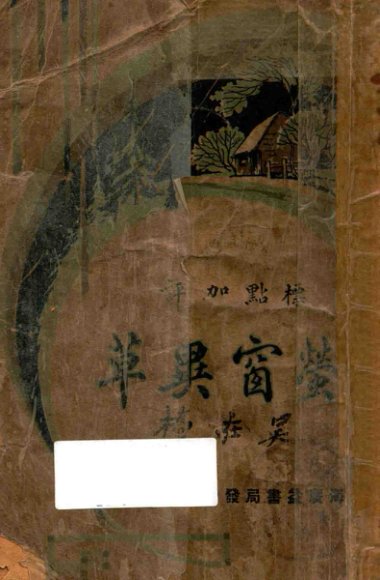 標點加評
螢窗異草
海廣益書局發